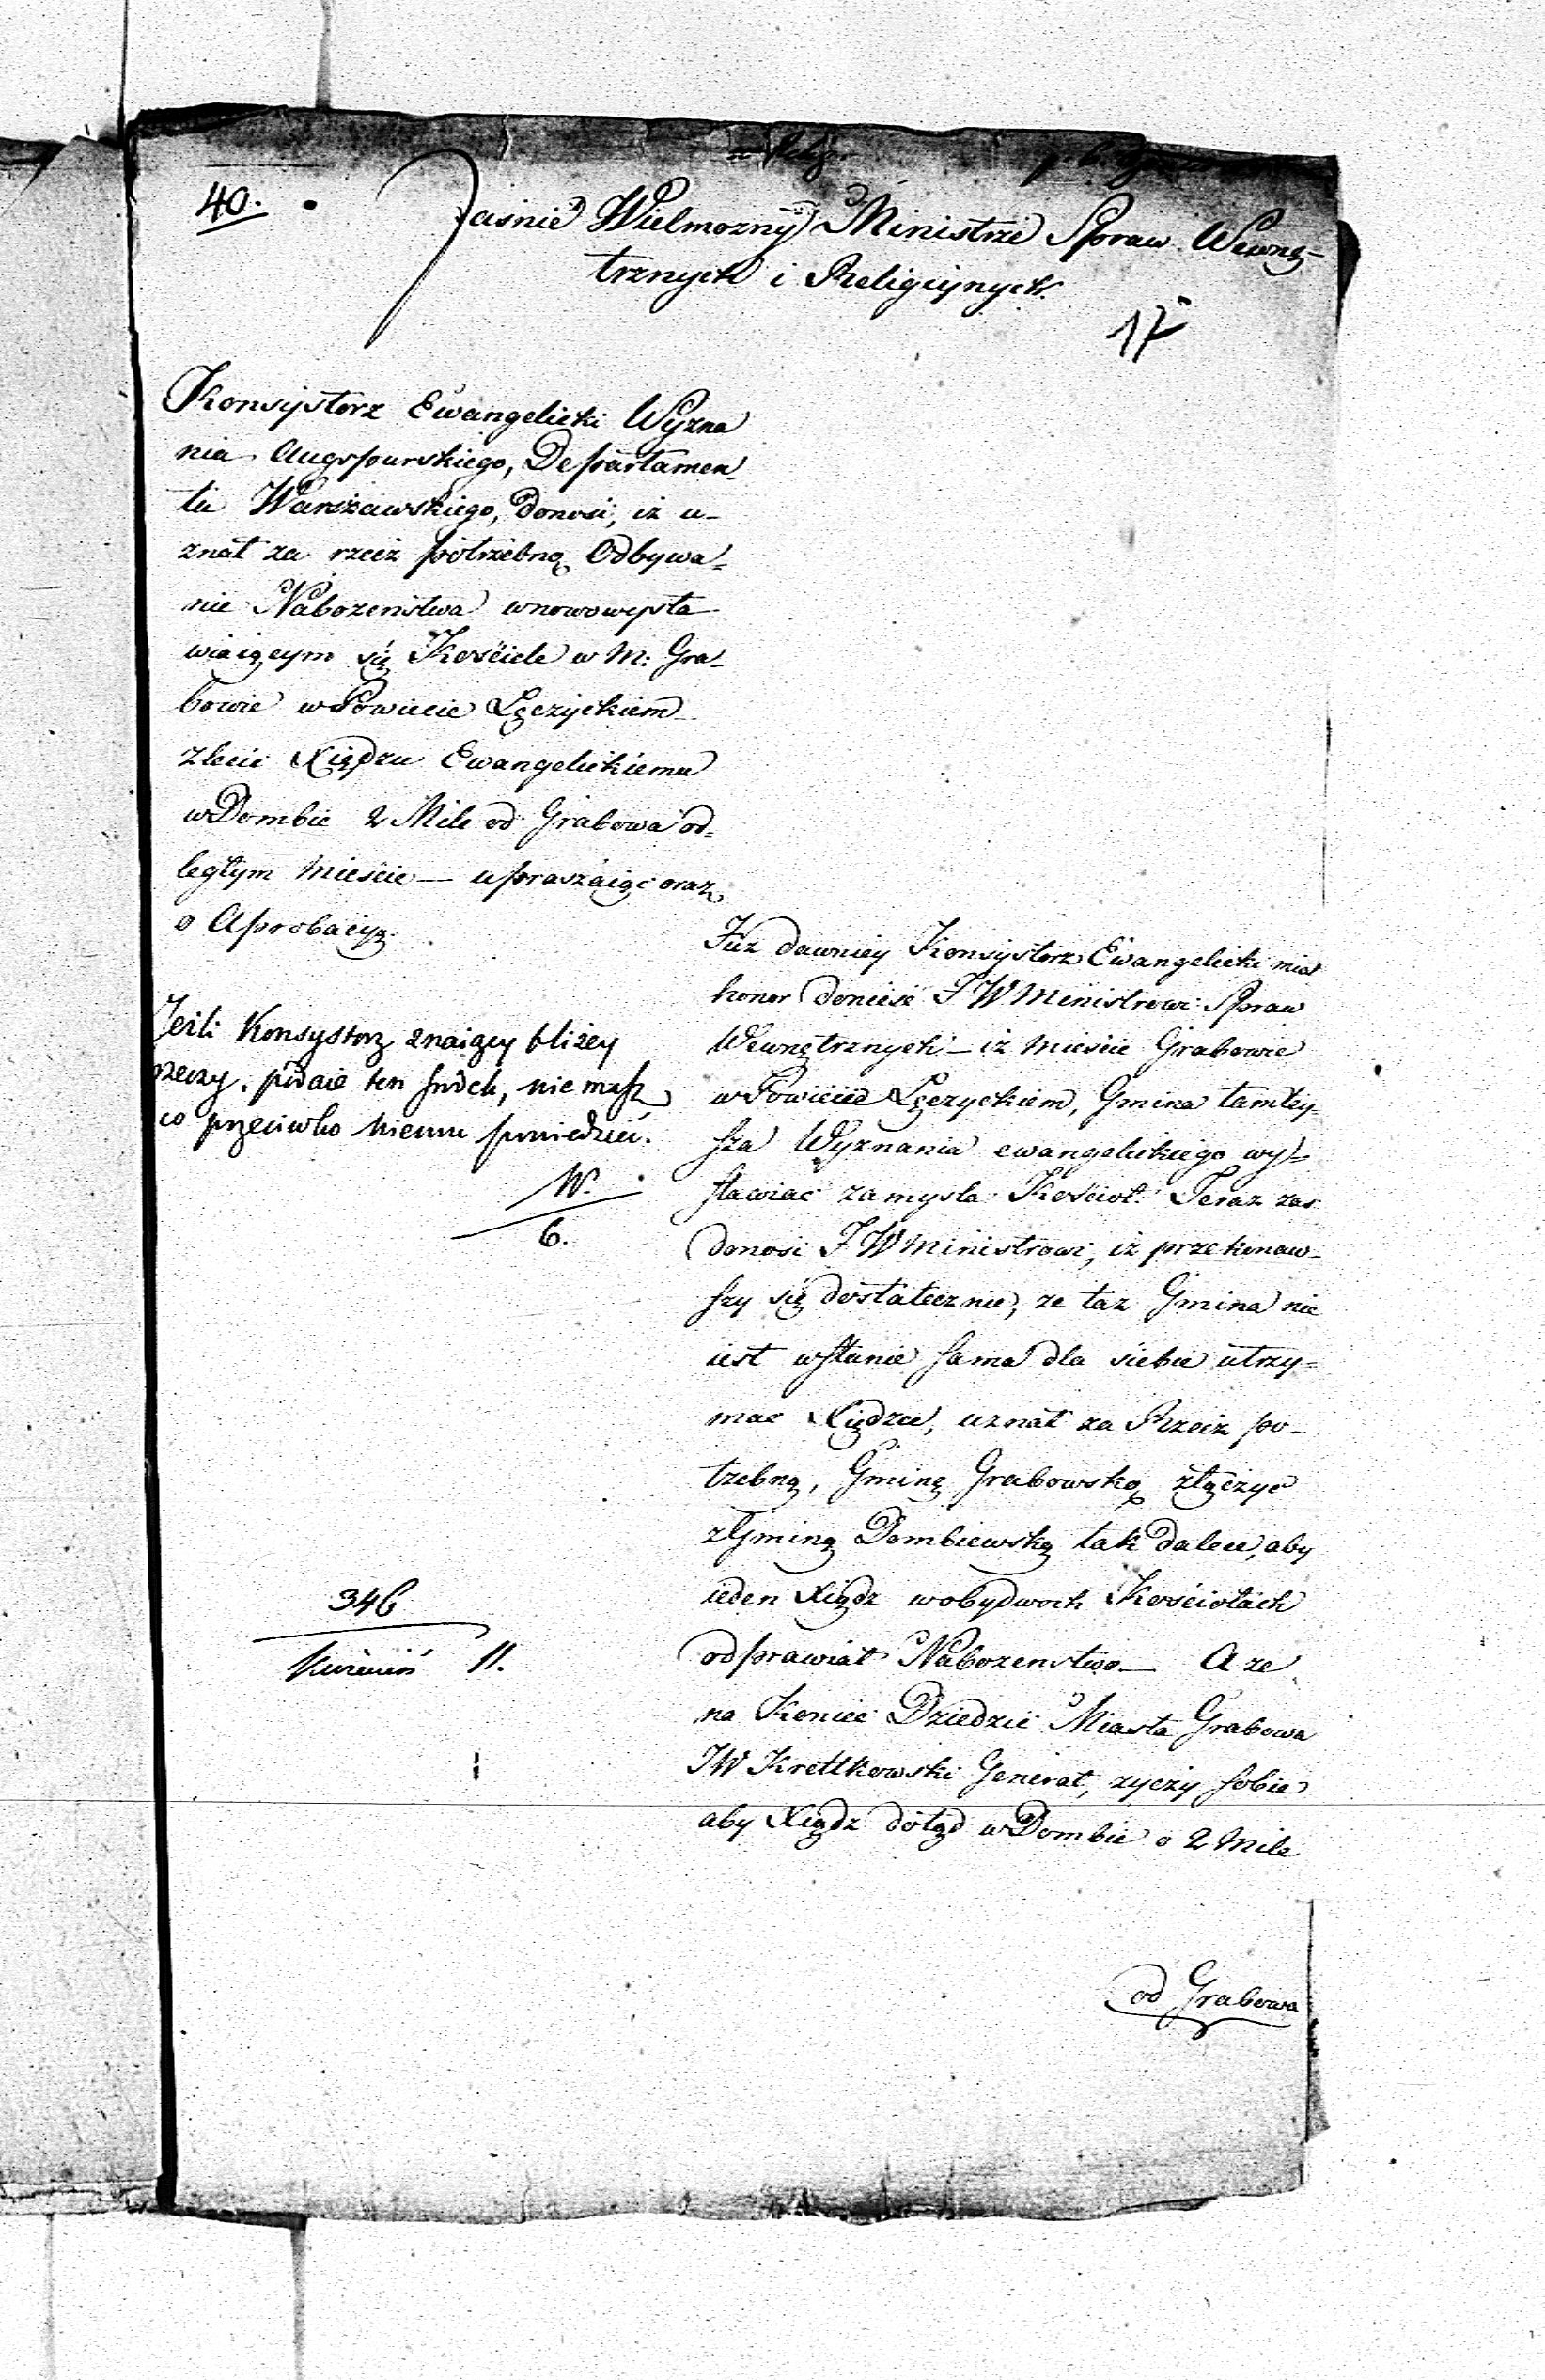 40.
Jaśnie Wielmozny Ministrze Spraw Wewnę-
trznych i Religijnych.
17
Konsystorz Ewangelicki Wyzna
nia Augspurskiego, Departamen-
tu Warszawskiego, donosi, iż u-
znał za rzecz potrzebną Odbywa-
nie Nabożeństwa w nowo wysta
wiaiącym się Kościele w M: Gra-
bowie w Powiecie Łęczyckiem
zlecić Xiędzu Ewangelickiemu
w Dombie 2 Mile od Grabowa od-
ległym Mieście — upraszaiąc oraz
o Aprobacyą.
Jeżli Konsystorz znaiący bliżey
rzeczy, podaie ten środek, nie masz
co przeciwko niemu powiedzieć.
W.
6.
346
Kwiecień 11.
Juz dawniey Konsystorz Ewangelicki miał
honor donieść JW Ministrowi Spraw
Wewnętrznych — iż w Mieście Grabowie
w Powiecie Łęczyckiem, Gmina tamtey-
sza Wyznania ewangelickiego wy-
stawiac zamysla Kościoł. Teraz zas
donosi JW Ministrowi, iż przekonaw-
szy się dostatecznie, ze taz Gmina nie
iest w stanie sama dla siebie utrzy-
mac Xiędza, uznał za Rzecz po-
trzebną, Gminę Grabowską złączyc
z Gminą Dombiewską tak dalece, aby
ieden Xiądz w obydwoch Kościołach
odprawiał Nabozenstwo — A ze
na Koniec Dziedzic Miasta Grabowa
JW Krettkowski Generał, zyczy sobie
aby Xiądz dotąd w Dombie o 2 Mile
od Grabowa